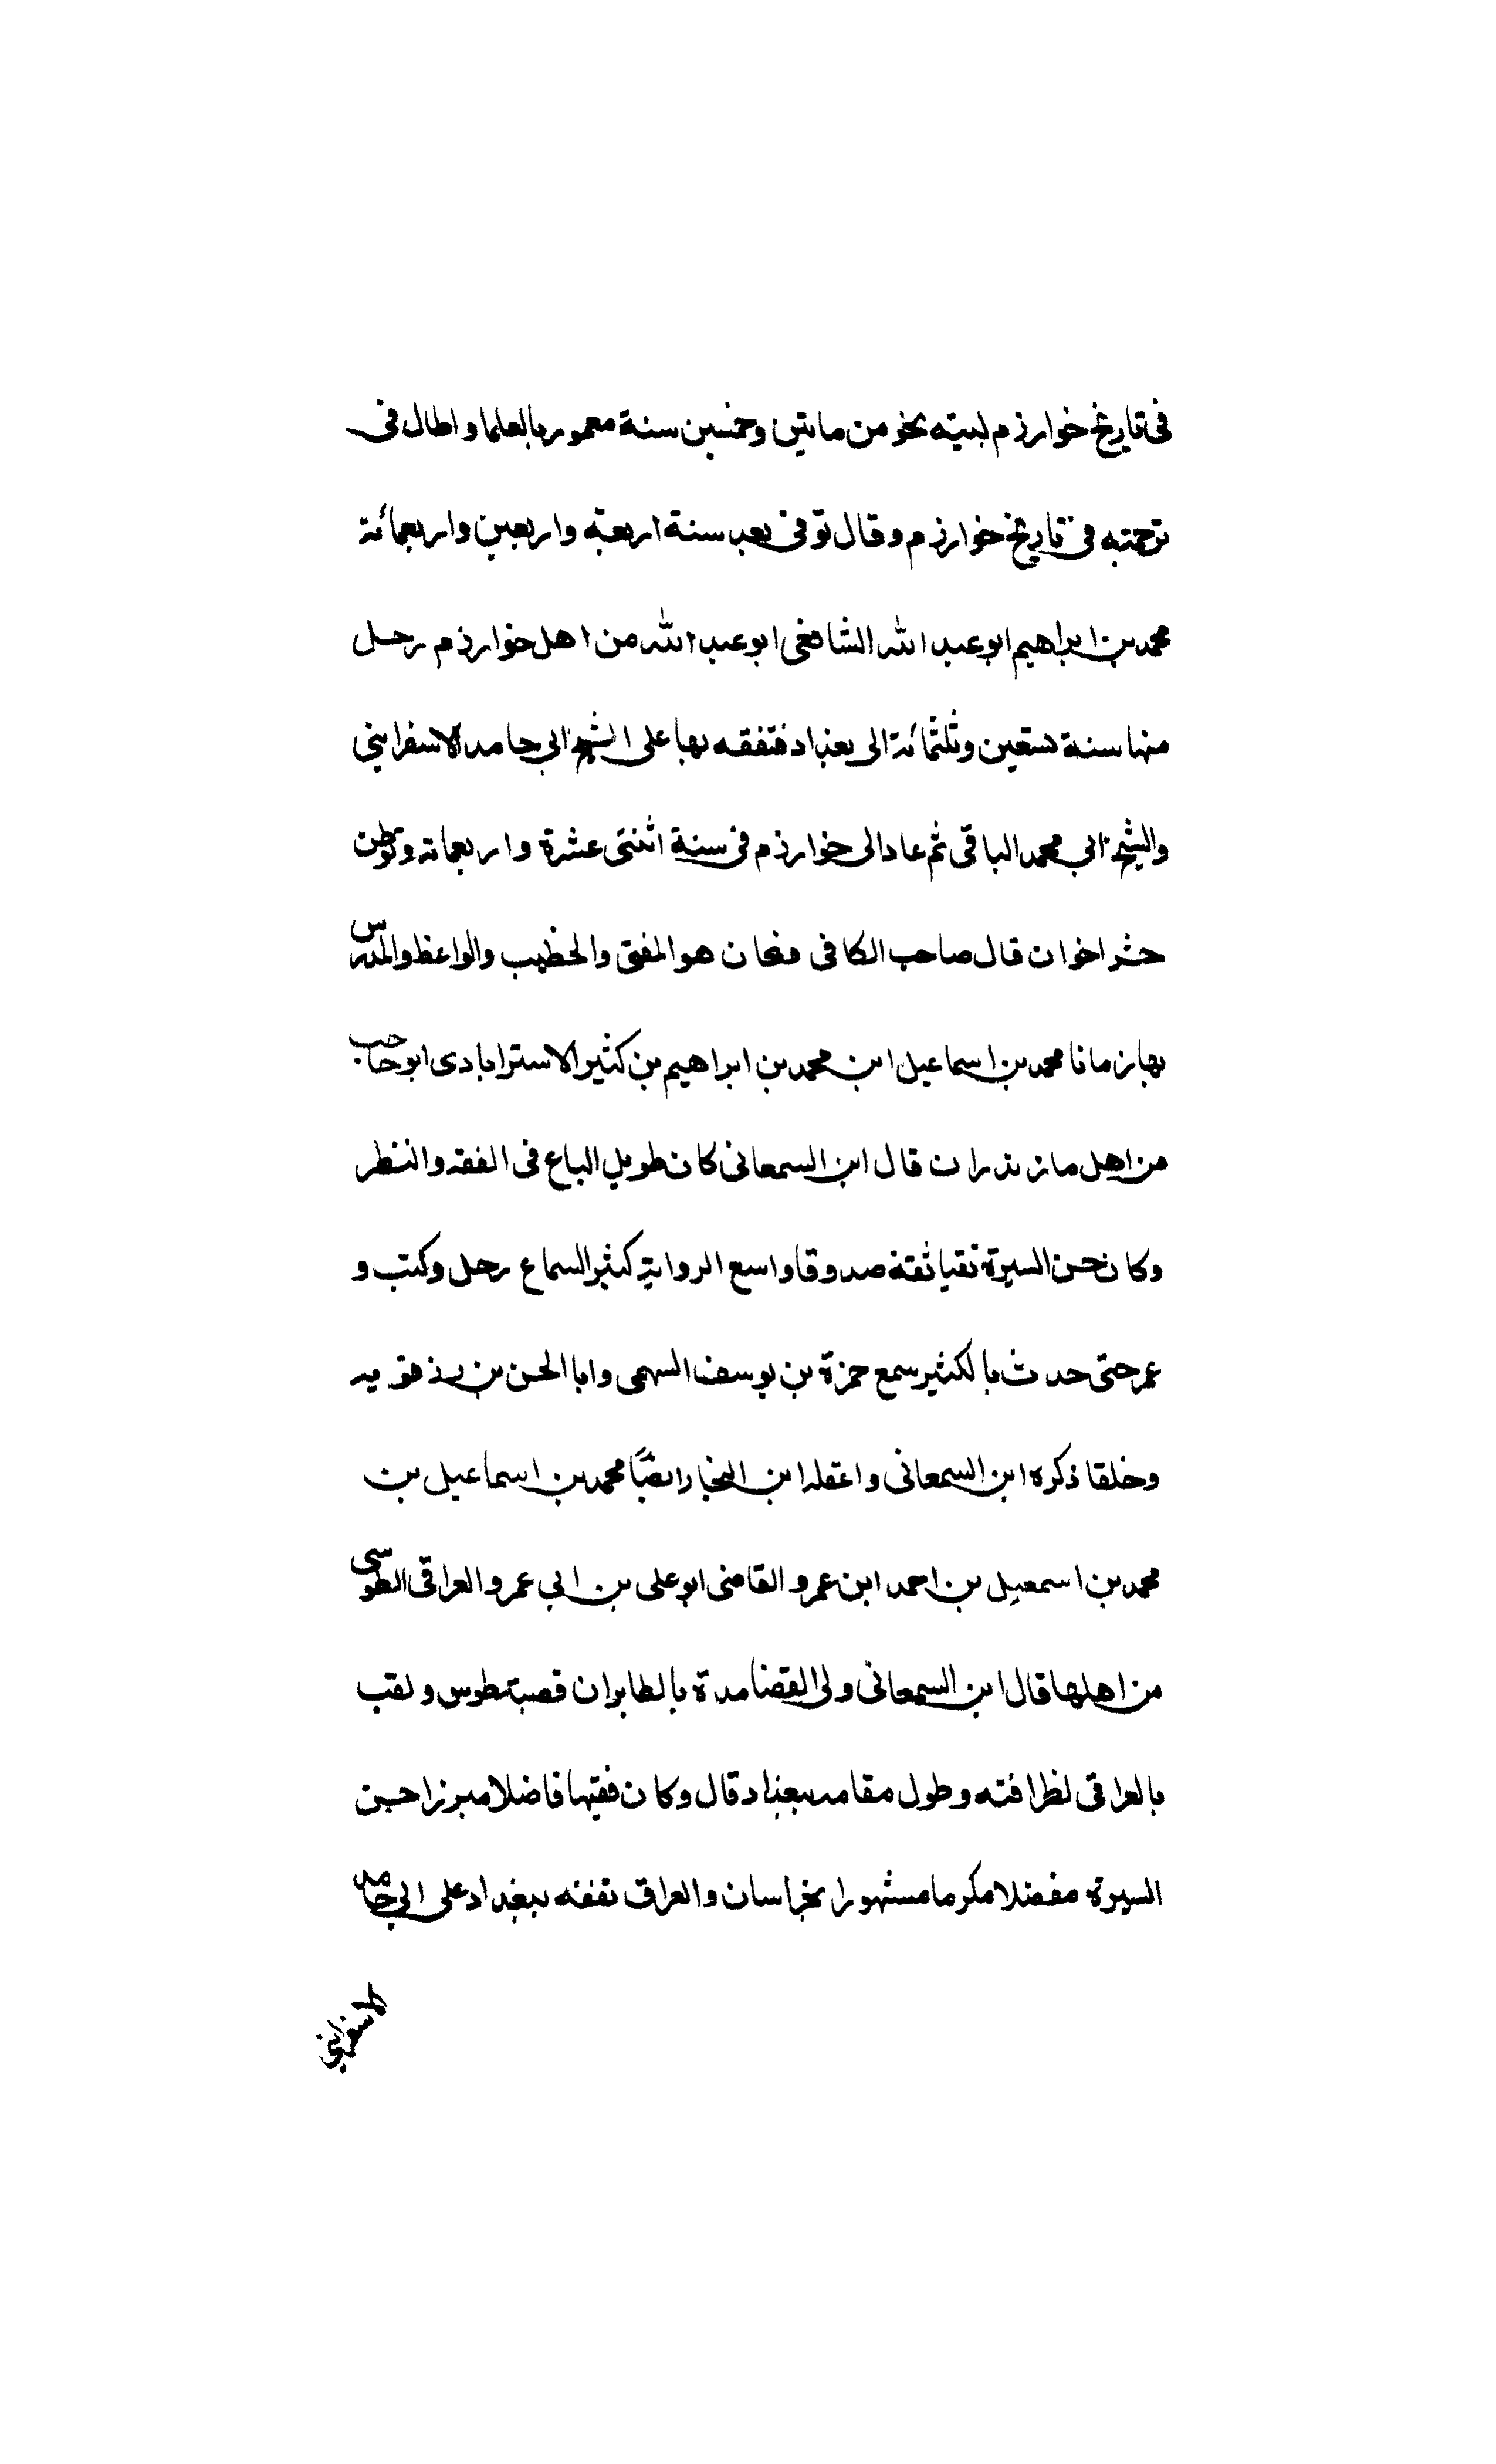 فى تاريخ خوارزم لبيته نحو من مايتين وخمسين سنة معمور بالعلما واطال فى
ترجمته فى تاريخ خوارزم وقال توفى بعد سنة اربعة واربعين واربعمائة
محمد بن ابراهيم ابو عبد الله الشافعى ابو عبد الله من اهل خوارزم رحل
منها سنة تسعين وثلثمائة الى بغداد فتفقه بها على الشيخ ابى حامد الاسفراينى
والشيخ ابى محمد الباقى ثم عاد الى خوارزم فى سنة اثنتى عشرة واربعماية وتوطن
اخوان قال صاحب الكافى فكان هو المفتى والخطيب والواعظ والمدرس
بها زمانا محمد بن اسماعيل ابن محمد بن ابراهيم بن كثير الاسترابادى ابو حاجب
من اهل مازندران قال ابن السمعانى كان طويل الباع فى الفقه والنظر
وكان حسن السيرة نقيا ثقة صدوقا واسع الرواية كثير السماع رحل وكتب و
عمر حتى حدث بالكثير سمع حمزة بن يوسف السهمى وابا الحسن بن
وخلقا ذكره ابن السمعانى واغفله ابن النجار ايضًا محمد بن اسماعيل بن
محمد بن اسمعيل بن احمد ابن عمرو القاضى ابو على بن ابى عمرو العراقى الطوسى
من اهلها قال ابن السمعانى ولى القضا مدة بالطابران قصبة طوس ولقب
بالعراقى لظرافته وطول مقامه ببغداد قال وكان فقيها فاضلا مبرزا حسن
السيرة مفضلا مكرما مشهورا بخراسان والعراق تفقه ببغداد على ابى حامد
الاسفراينى